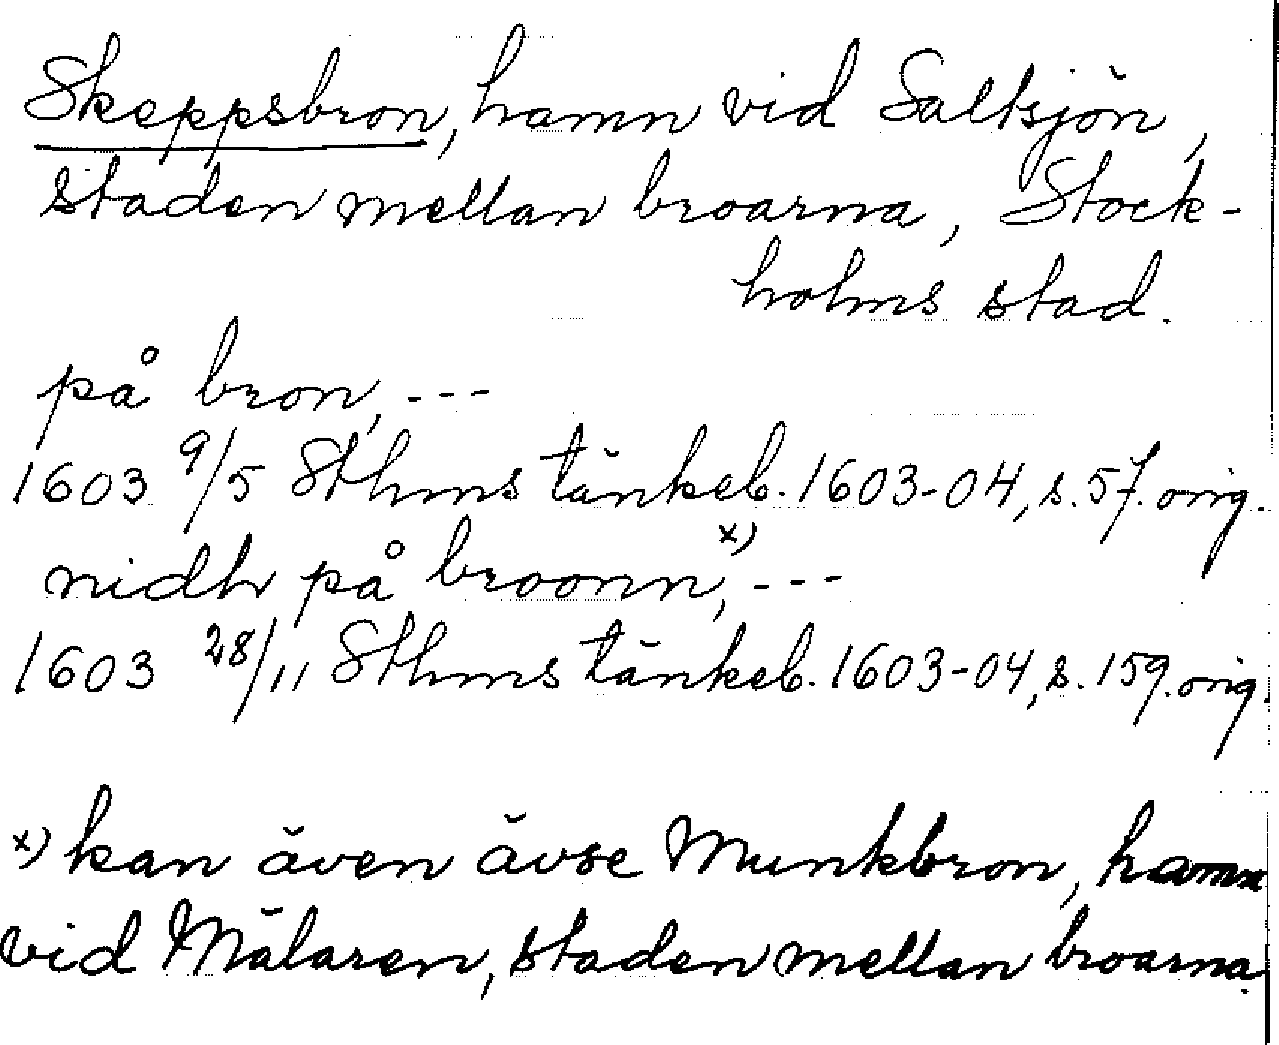 Skeppsbron, hamn vid Saltsjön,
staden mellan broarna, Stock-
holms stad.
på bron, ---
1603 9/5 Sthms tänkeb. 1603-04, s. 57. orig.
nidh på broonn,x) ---
1603 28/11 Sthms tänkeb. 1603-04, s. 159. orig.
x) kan även avse Munkbron, hamn
vid Mälaren, staden mellan broarna.